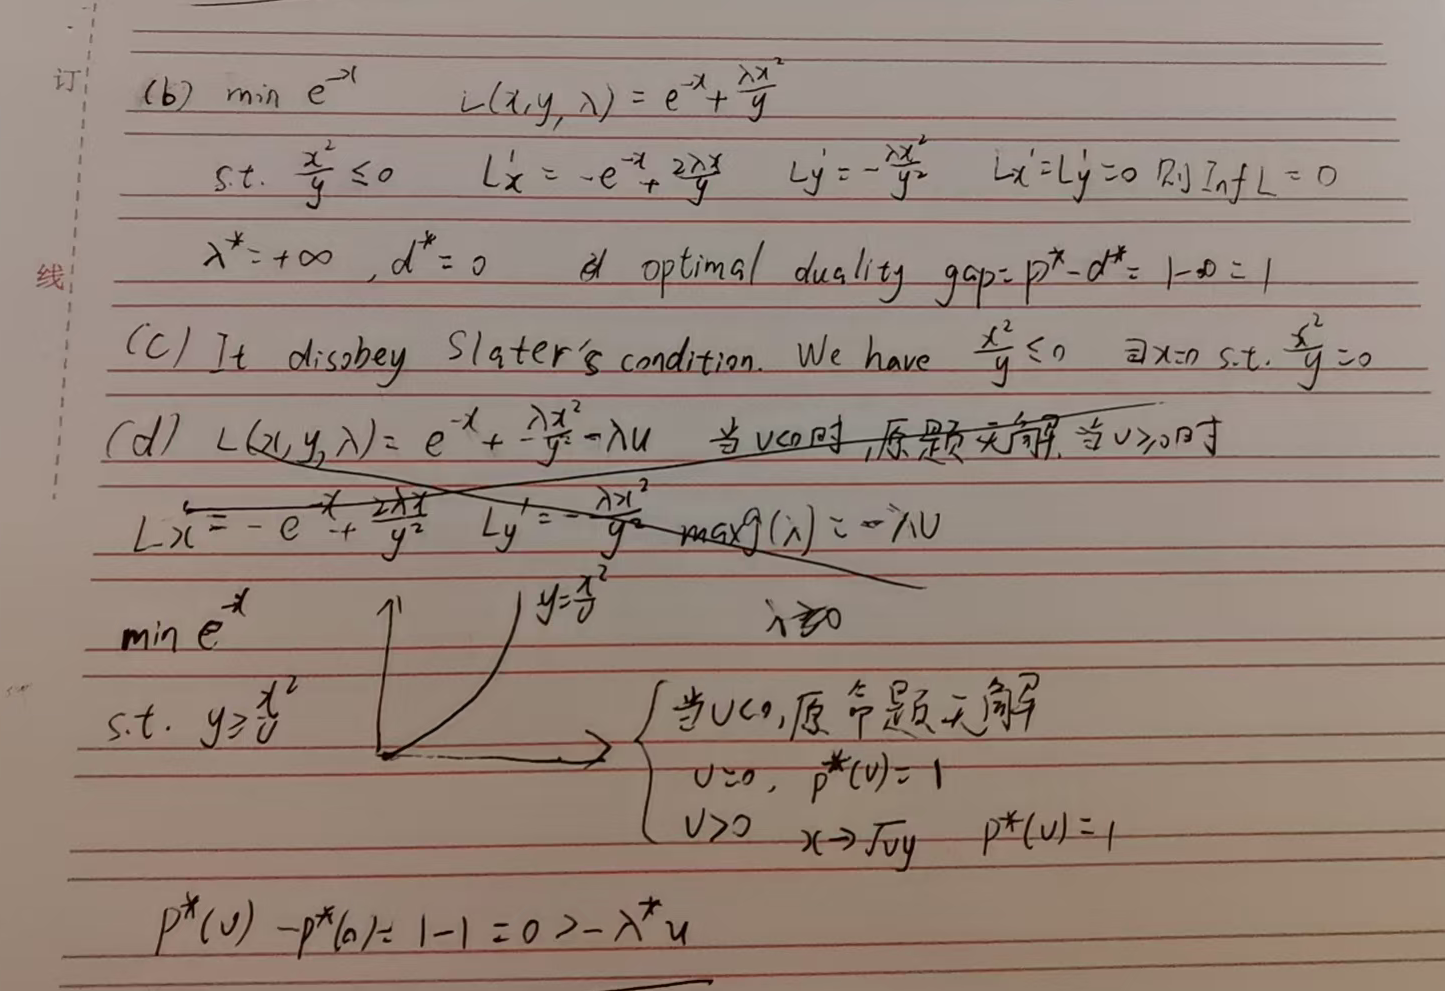 订
线
(b) min e^{-x} L(x,y,λ) = e^{-x} + \frac{λx^2}{y}
s.t. \frac{x^2}{y} ≤ 0 L'_x = -e^{-x} + \frac{2λx}{y} L'_y = -\frac{λx^2}{y^2} L'_x = L'_y = 0 则 Inf L = 0
λ^* = +∞, d^* = 0 optimal duality gap = p^* - d^* = 1-0 = 1
(c) It disobey Slater's condition. We have \frac{x^2}{y} ≤ 0 ∃x=0 s.t. \frac{x^2}{y} = 0
(d) L(x,y,λ) = e^{-x} + \frac{λx^2}{y^2} - λu 当u<0时,原题无解,当u≥0时
L'_x = -e^{-x} + \frac{2λx}{y^2} L'_y = -\frac{λx^2}{y^2} max g(λ) = -λu
λ≥0
min e^{-x} y = \frac{x^2}{u}
s.t. y ≥ \frac{x^2}{u}
当u<0,原命题无解
u=0, p^*(u) = 1
u>0 x→√uy p^*(u) = 1
p^*(u) - p^*(0) = 1-1 = 0 > -λ^*u